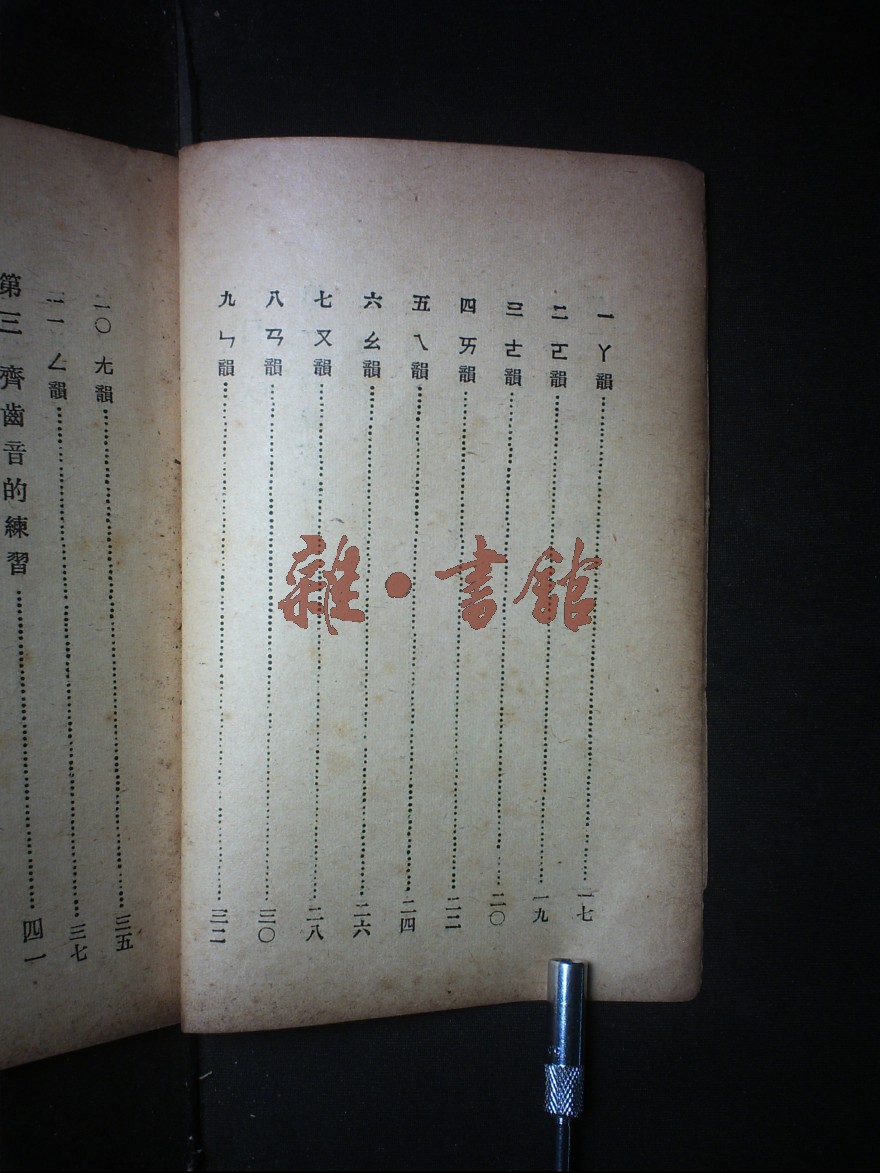 一 ㄚ韻⋯⋯一七
二 ㄛ韻⋯⋯一九
三 ㄜ韻⋯⋯二〇
四 ㄞ韻⋯⋯二二
五 ㄟ韻⋯⋯二四
六 ㄠ韻⋯⋯二六
七 ㄡ韻⋯⋯二八
八 ㄢ韻⋯⋯三〇
九 ㄣ韻⋯⋯三二
一〇 ㄤ韻⋯⋯三五
一一 ㄥ韻⋯⋯三七
第三 齊齒音的練習⋯⋯四一
雜·書館